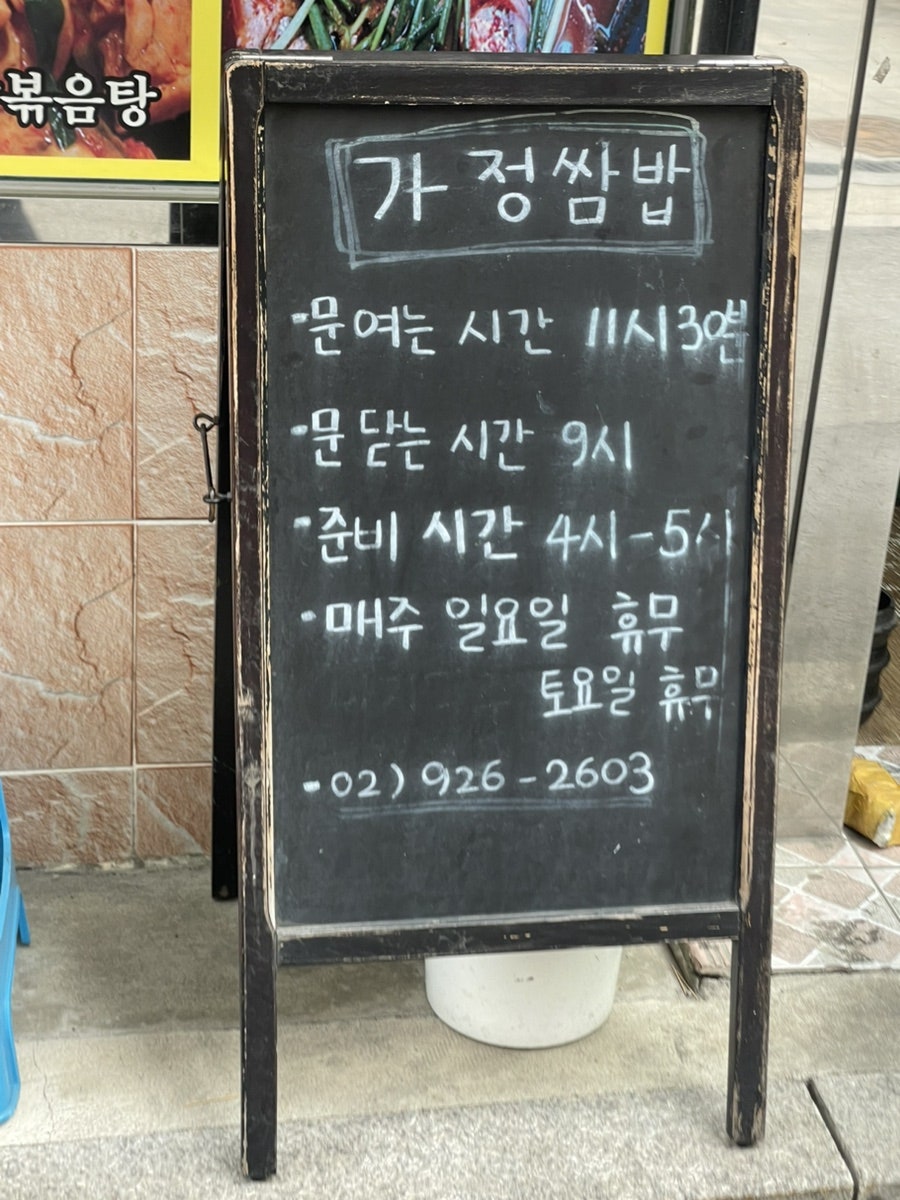 볶음탕
가정쌈밥
-문 여는 시간 11시30분
-문 닫는 시간 9시
-준비 시간 4시-5시
·매주 일요일 휴무
토요일 휴무
-02) 926-2603